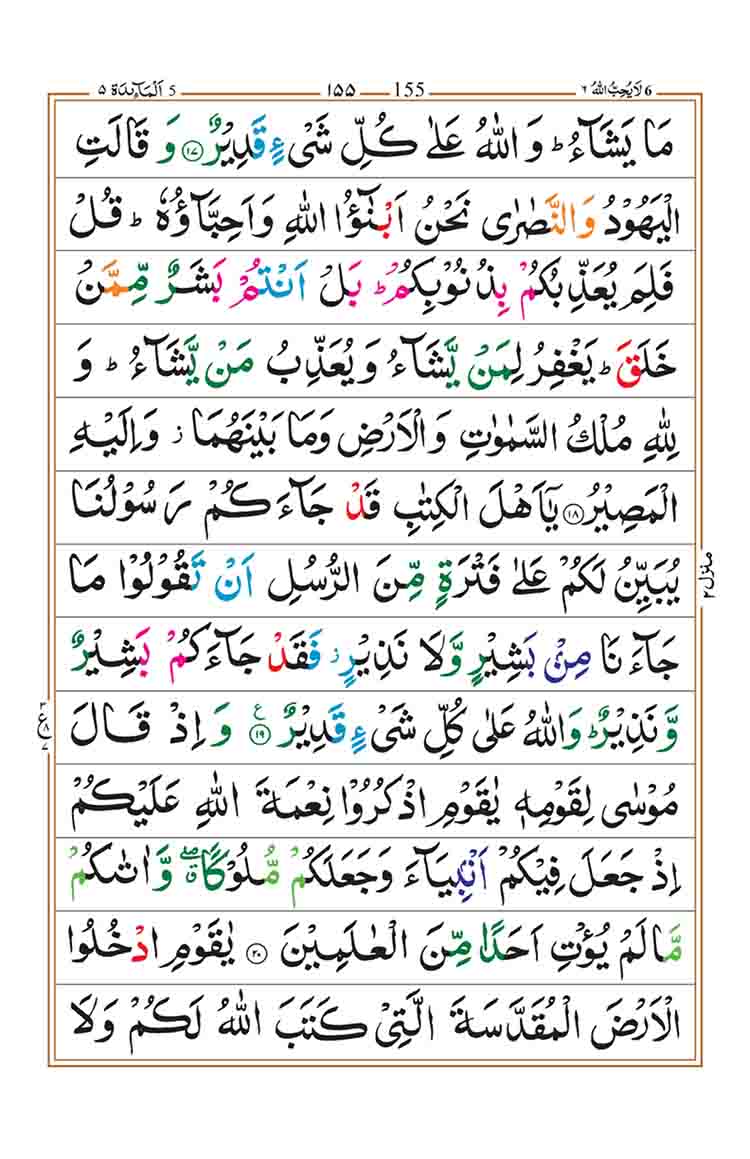 6 لَا يُحِبُّ اللّٰهُ ٦ 155 ١٥٥ 5 اَلْمَآئِدَة ٥
مَا يَشَآءُ ؕ وَ اللّٰهُ عَلٰی كُلِّ شَیْءٍ قَدِیْرٌ ۝۱۷ وَ قَالَتِ
الْیَهُوْدُ وَالنَّصٰرٰی نَحْنُ اَبْنٰٓؤُا اللّٰهِ وَاَحِبَّآؤُهٗ ؕ قُلْ
فَلِمَ یُعَذِّبُكُمْ بِذُنُوْبِكُمْ ؕ بَلْ اَنْتُمْ بَشَرٌ مِّمَّنْ
خَلَقَ ؕ یَغْفِرُ لِمَنْ یَّشَآءُ وَ یُعَذِّبُ مَنْ یَّشَآءُ ؕ وَ
لِلّٰهِ مُلْكُ السَّمٰوٰتِ وَ الْاَرْضِ وَمَا بَیْنَهُمَا ؗ وَاِلَیْهِ
الْمَصِیْرُ ۝۱۸ یٰۤاَهْلَ الْكِتٰبِ قَدْ جَآءَكُمْ رَسُوْلُنَا
یُبَیِّنُ لَكُمْ عَلٰی فَتْرَةٍ مِّنَ الرُّسُلِ اَنْ تَقُوْلُوْا مَا
جَآءَنَا مِنْۢ بَشِیْرٍ وَّلَا نَذِیْرٍ ؗ فَقَدْ جَآءَكُمْ بَشِیْرٌ
وَّ نَذِیْرٌ ؕ وَاللّٰهُ عَلٰی كُلِّ شَیْءٍ قَدِیْرٌ ۝۱۹ ع وَ اِذْ قَالَ
مُوْسٰی لِقَوْمِهٖ یٰقَوْمِ اذْكُرُوْا نِعْمَةَ اللّٰهِ عَلَیْكُمْ
اِذْ جَعَلَ فِیْكُمْ اَنْۢبِیَآءَ وَجَعَلَكُمْ مُّلُوْكًا ۖۗ وَّاٰتٰىكُمْ
مَّا لَمْ یُؤْتِ اَحَدًا مِّنَ الْعٰلَمِیْنَ ۝۲۰ یٰقَوْمِ ادْخُلُوا
الْاَرْضَ الْمُقَدَّسَةَ الَّتِیْ كَتَبَ اللّٰهُ لَكُمْ وَلَا
منزل ٢